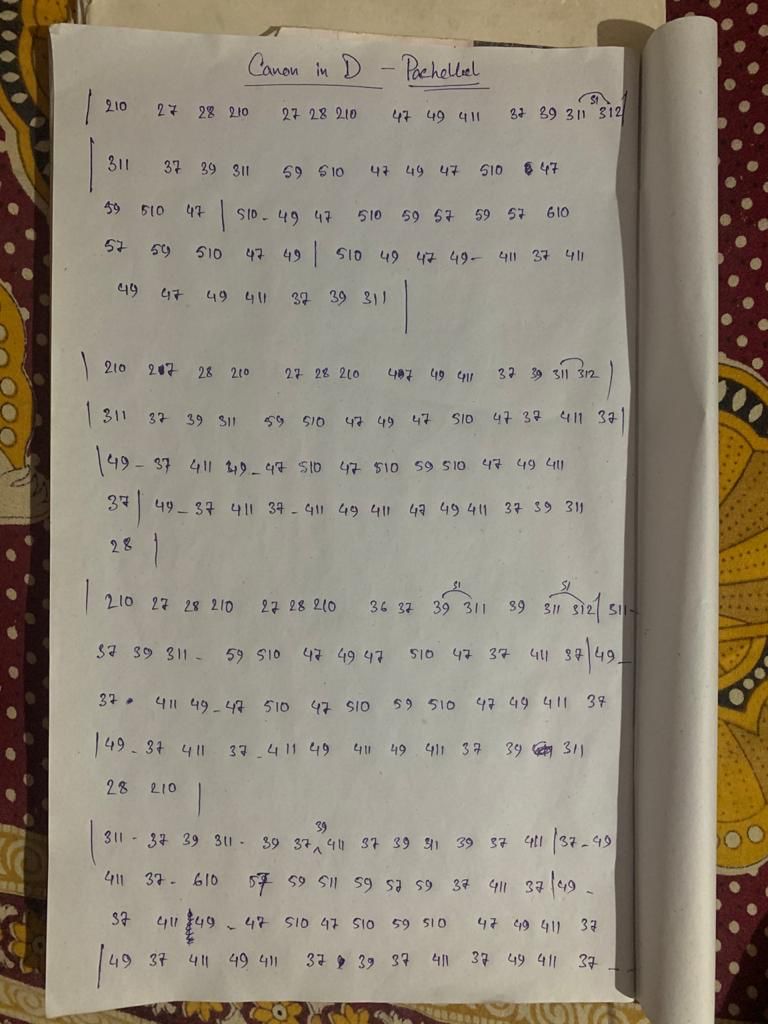 Canon in D - Pachelbel
| 210 27 28 210 27 28 210 47 49 411 37 39 311 sl 312 |
| 311 37 39 311 59 510 47 49 47 510 47
59 510 47 | 510 - 49 47 510 59 57 59 57 610
57 59 510 47 49 | 510 49 47 49 - 411 37 411
49 47 49 411 37 39 311 |
| 210 27 28 210 27 28 210 47 49 411 37 39 311 312 |
| 311 37 39 311 59 510 47 49 47 510 47 37 411 37 |
| 49 - 37 411 49 - 47 510 47 510 59 510 47 49 411
37 | 49 - 37 411 37 - 411 49 411 47 49 411 37 39 311
28 |
| 210 27 28 210 27 28 210 36 37 39 sl 311 39 311 sl 312 | 311 -
37 39 311 - 59 510 47 49 47 510 47 37 411 37 | 49 -
37 411 49 - 47 510 47 510 59 510 47 49 411 37
| 49 - 37 411 37 - 411 49 411 49 411 37 39 311
28 210 |
| 311 - 37 39 311 - 39 37 39 411 37 39 311 39 37 411 | 37 - 49
411 37 - 610 57 59 511 59 57 59 37 411 37 | 49 -
37 411 49 - 47 510 47 510 59 510 47 49 411 37
| 49 37 411 49 411 37 39 37 411 37 49 411 37 - -